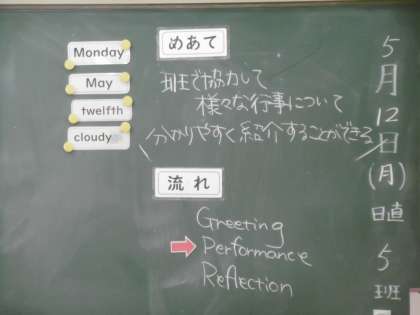 Monday
May
twelfth
cloudy
めあて
班で協力して
様々な行事について
分かりやすく紹介することができる
流れ
Greeting
Performance
Reflection
5月12日(月)
日直
5班